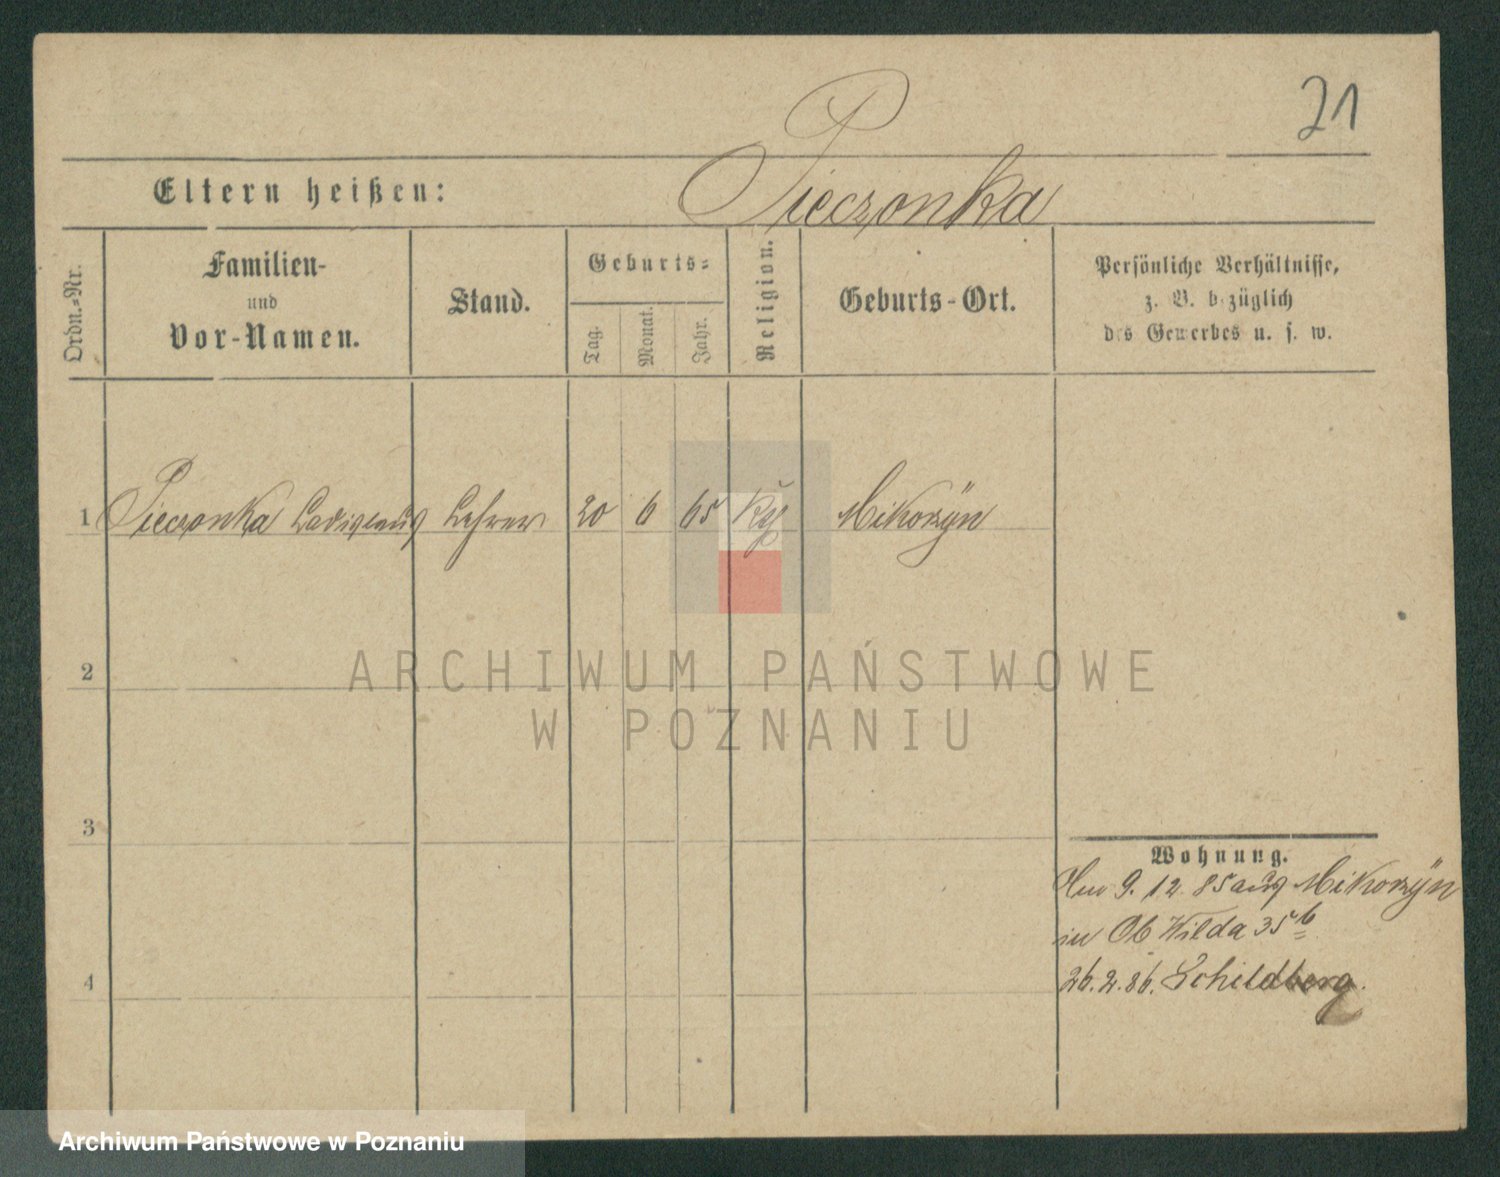 21
Pieczonka
Eltern heißen:
Ordn.-Nr.
Familien-
und
Vor-Namen.
Stand.
Geburts-
Tag.
Monat.
Jahr.
Religion.
Geburts-Ort.
Persönliche Verhältnisse,
z. B. bezüglich
des Gewerbes u. s. w.
1 Pieczonka Ladislaus Lehrer 20 6 65 Mikorzÿn
2
ARCHIWUM PAŃSTWOWE
W POZNANIU
3
Wohnung.
9. 12. 85 aus Mikorzÿn
in Ob Wilda 35 b
4
26.2.86. Schildberg.
Archiwum Państwowe w Poznaniu